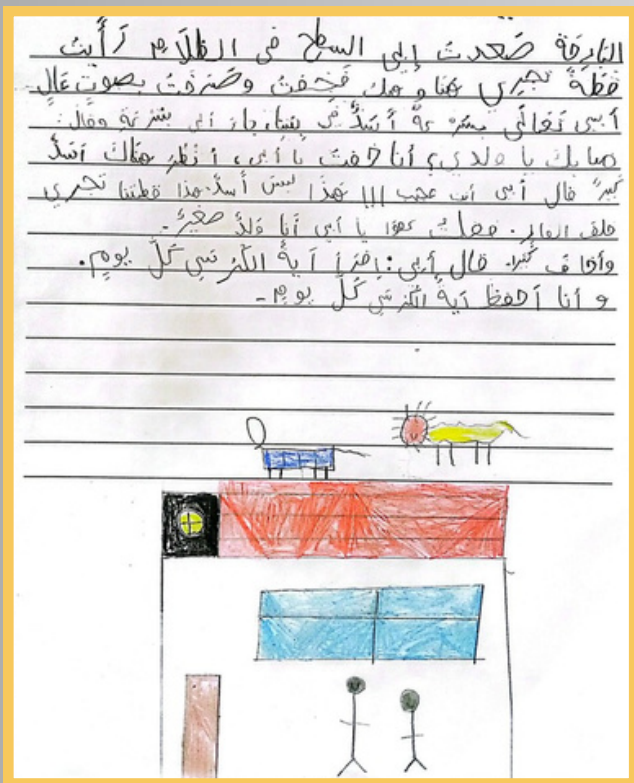 البارحة صَعدت إلى السطح في الظلام رَأَيت
قطة تجري هنا وهناك فخفت وصَرخت بصوتٍ عَالٍ
أبي تعالى بسرعة أَسَدٌ في بيتنا، جاء أبي بسرعة وقال:
ما بك يا ولدي؟ أنا خفت يا أبي، أنظر هناك أسدٌ
كبيرٌ قال أبي أنت عجيب !!! هَذا ليس أسدٌ هذا قطتنا تجري
خلف الفار. فقلت عفوًا يا أبي أنا وَلدٌ صغيرٌ.
وأخاف كثيرا. قال أبي: اقرأ آيةُ الكُرْسي كلَّ يومٍ.
و أنا أحفظ آيةُ الكُرْسي كلَّ يومٍ.